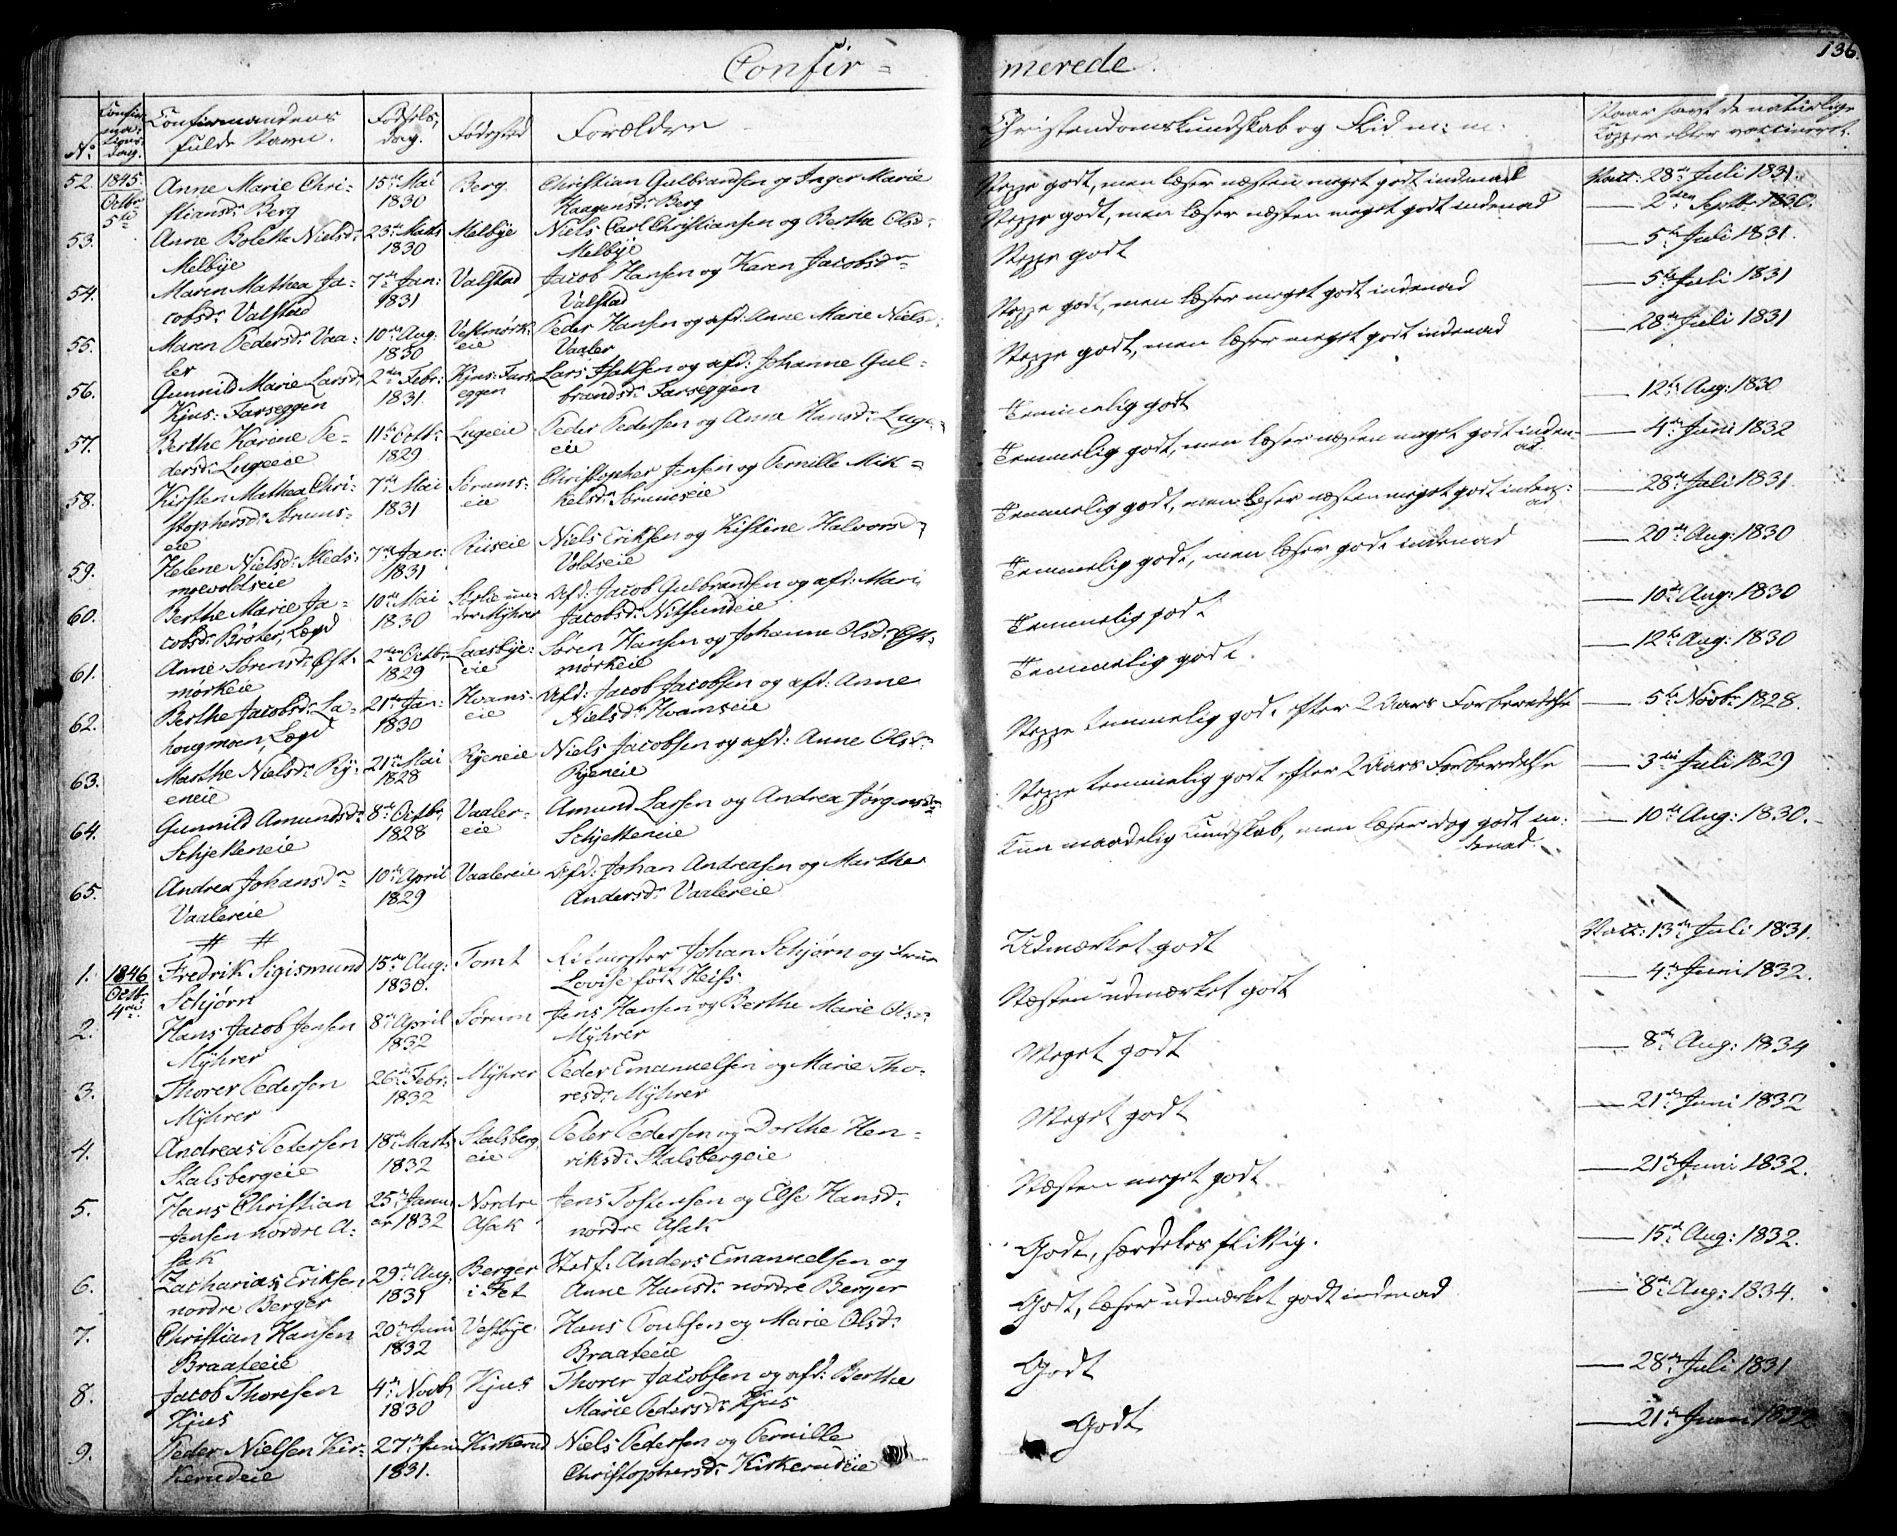 Confir=
merede.
136.
No.
Confirmations dag.
Confirmandens
fulde Navn.
Fødsels,
dag.
Fødested
Forældre
Christendomskundskab og Flid m: m:
Naar havt de naturlige
Kopper eller vaccineret.
52. 1845. Octbr 5te Anne Marie Chri-
stiansdr Berg
15de Mai
1830
Berg
Christian Gulbrandsen og Inger Marie
Haagensdr Berg
Neppe godt, men læser næsten meget godt indenad
Vacc: 28de Juli 1831.
53. Anne Bolette Nielsdr
Melbye
23de Marts
1830
Melbye
Niels Carl Christiansen og Berthe Olsdr
Melbye
Neppe godt, men læser næsten meget godt indenad
— 2den Septbr 1830.
54. Maren Mathea Ja-
cobsdr Valstad
7de Jan:
1831
Valstad
Jacob Hansen og Karen Jacobsdr
Valstad
Neppe godt
— 5te Juli 1831.
55. Maren Pedersdr Vaa-
ler
10de Aug:
1830
Vestmørk-
eie
Peder Hansen og afd: Anne Marie Nielsd:
Vaaler
Neppe godt, men læser meget godt indenad
— 5te Juli 1831
56. Gunnild Marie Larsdr
Kjus: Farseggen
2den Febr:
1831
Kjus: Fars-
eggen
Lars Isaksen og afd: Johanne Gul-
brandsdr Farseggen
Neppe godt, men læser meget godt indenad
— 28de Juli 1831
57. Berthe Karine Pe-
dersdr Lugeeie
11te Octbr
1829
Lugeeie
Peder Pedersen og Anne Hansdr Luge-
eie
Temmelig godt
— 12te Aug: 1830
58. Kirsten Mathea Chri-
stophersdr Sørums-
eie
7de Mai
1831
Sørums-
eie
Christopher Jensen og Pernille Mik-
kelsdr Sørumseie
Temmelig godt, men læser næsten meget godt inden-
ad.
— 4de Juni 1832
59. Helene Nielsdr Skeds-
moevoldseie
7de Jan:
1831
Riiseie
Niels Eriksen og Kistine Halvorsd
Voldseie
Temmelig godt, men læser næsten meget godt inden-
ad
— 28de Juli 1831.
60. Berthe Marie Ja-
cobsdr Brøter, Lægd
10de Mai
1830
Sørlie un-
der Myhrer
Afd: Jacob Gulbrandsen og afd: Mari
Jacobsdr Nitsundeie
Temmelig godt, men læser godt indenad
— 20de Aug: 1830
61. Anne Sørensdr Øst-
mørkeie
2den Octbr
1829
Laasbye-
eie
Søren Hansen og Johanne Olsdr Øst-
mørkeie
Temmelig godt
— 10de Aug: 1830
62. Berthe Jacobsdr La-
hougmoen, Lægd
21de Jan:
1830
Hvams-
eie
Afd: Jacob Jacobsen og afd: Anne
Nielsdr Hvamseie
Temmelig godt.
— 12te Aug: 1830
63. Marthe Nielsdr Ry-
eneie
21de Mai
1828
Ryeneie
Niels Jacobsen og afd: Anne Olsdr
Ryeneie
Neppe temmelig godt efter 2 Aars Forberedelse
— 5te Novbr 1828.
64. Gunnild Amundsdr
Schjetteneie
8de Octbr
1828
Vaaler-
eie
Amund Larsen og Andrea Jørgensdr
Schjetteneie
Neppe temmelig godt efter 2 Aars Forberedelse
— 3die Juli 1829
65. Andrea Johansdr
Vaalereie
10de April
1829
Vaalereie
Afd: Johan Andreasen og Marthe
Andersdr Vaalereie
Kun maadelig Kundskab, men læser dog godt in-
denad.
— 10de Aug: 1830.
1. 1846 Octbr 4de Fredrik Sigismund
Schjørn
15de Aug:
1830.
Tomt
Ritmester Johan Schjørn og Frue
Lovise født Heiss
Udmærket godt
Vacc: 13de Juli 1831.
2. Hans Jacob Jensen
Myhrer
8de April
1832
Sørum
Jens Hansen og Berthe Marie Olsdr
Myhrer
Næsten udmærket godt
— 4de Juni 1832.
3. Thorer Pedersen
Myhrer
26de Febr:
1832
Myhrer
Peder Emanuelsen og Marie Tho-
resdr Myhrer
Meget godt
— 8de Aug: 1834
4. Andreas Petersen
Stalsbergeie
18de Marts
1832
Stalsberg
eie
Peter Pedersen og Dorthe Hen-
riksdr Stalsbergeie
Meget godt
— 21de Juni 1832
5. Hans Christian
Jensen nordre A-
sak
25de Janu-
ar 1832
Nordre
Asak
Jens Tostensen og Else Hansdr
nordre Asak
Næsten meget godt
— 21de Juni 1832.
6. Zacharias Eriksen
nordre Berger
29de Aug:
1831
Berger
i Fet
Stedf: Anders Emanuelsen og
Anne Hansdr nordre Berger
Godt, særdeles flittig.
— 15de Aug: 1832.
7. Christian Hansen
Braateeie
20de Juni
1832
Vestbye
Hans Poulsen og Marie Olsdr
Braateeie
Godt, læser udmærket godt indenad
— 8de Aug: 1834.
8. Jacob Thoresen
Kjus
4de Novbr
1830
Kjus
Thorer Jacobsen og afd: Berthe
Marie Pedersdr Kjus
Godt
— 28de Juli 1831
9. Peder Nielsen Kir-
kerudeie
27de Juni
1831.
Kirkerud
Niels Pedersen og Pernille
Christophersdr Kirkerudeie
Godt
— 21de Juni 1832